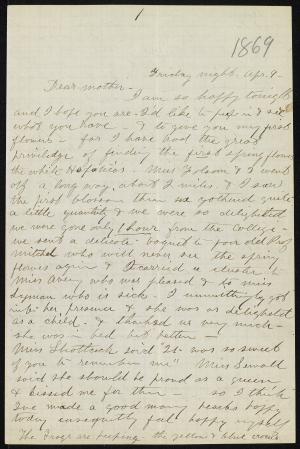 1
1869
Friday night. Apr. 9 -
Dear mother -
I am so happy tonight
and I hope you are. I'd like to peep in & see
what you have & to give you my first
flowers - for I have had the great
priviledge of finding the first spring flower
the white Hepaticas. Miss Folsom & I went
off a long way, about 2 miles, & I saw
the first blossom then we gathered quite
a little quantity & we were so delighted
we were gone only 1 hour from the College -
we sent a delicate boquet to poor old Prof
Mitchel who will never see the spring
flowers again & I carried a cluster to
Miss Avery who was pleased & to miss
Lyman who is sick. I unwittingly got
into her presence & she was as delighted
as a child. & thanked us very much -
she was in bed but better -
Miss Shattuck said "It was so sweet
of you to remember me" Miss Sewall
said she should be proud as a queen
& kissed me for them - so I think
I've made a good many hearts happy
today consequently feel happy myself
The frogs are peeping. the yellow & blue